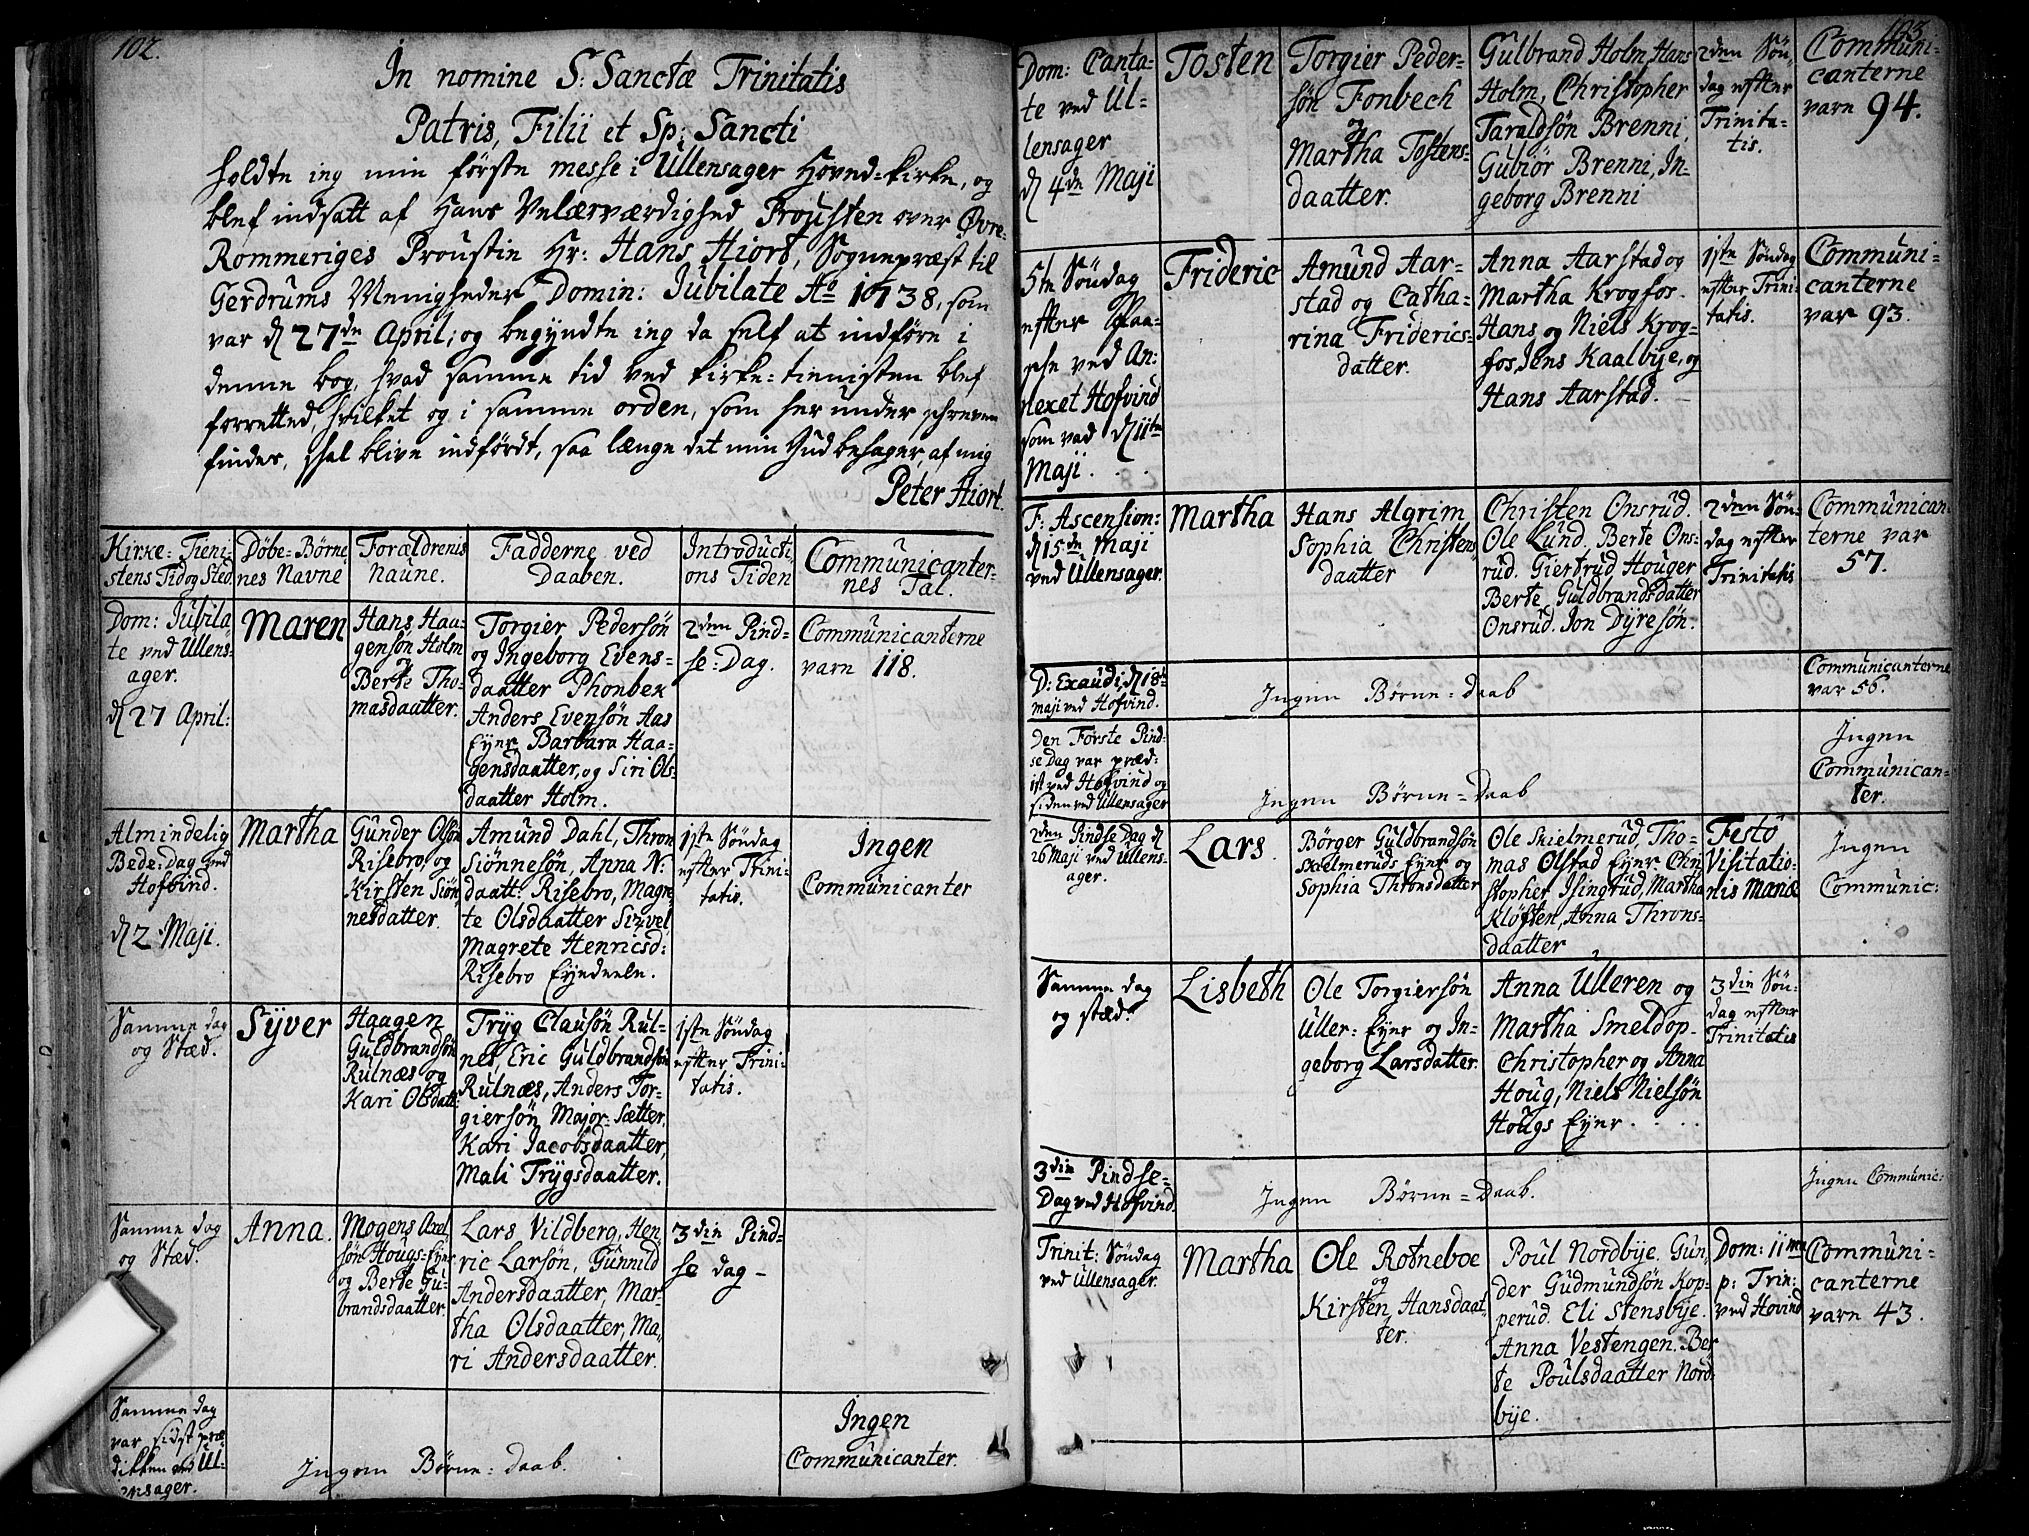 102.
In nomine S: Sanctæ Trinitatis
Patris, Filii et Sp: Sancti
holdte ieg min förste messe i Ullensager Hoved=kirke, og
blef indsatt af Hans Velærværdighed Prousten over Øvre-
Rommeriges Proustie Hr: Hans Hiort, Sognepræst til
Gerdrums Menigheder Domin: Jubilate Aº 1738, som
var d 27de April; og begyndte ieg da self at indföre i
denne bog, hvad samme tid ved kirke=tienisten blef
forretted, hvilket og i samme orden, som her under skreven
findes, skal blive indfördt, saa længe det min Gud behager, af mig
Peter Hiort.
Kirke=Tieni-
stens Tid og Sted
Døbe=Børne
nes Navne
Forældrenis
Naune.
Fadderne ved
Daaben.
Introducti-
ons Tiden
Communicanter-
nes Tal.
Dom: Jubila
te ved Ullens-
ager.
d 27 April:
Maren
Hans Haa-
gensön Holm
og
Berte Tho-
masdaatter.
Torgier Pedersön
og Ingeborg Evens-
daatter Phonbek
Anders Evensön Aas
Eyer, Barbara Haa-
gensdaatter, og Siri Ols-
daatter Holm.
2den Pind-
se=Dag.
Communicanterne
varn 118.
Almindelig
Bede=Dag ved
Hofvind.
d 2 Maji.
Martha
Gunder Olsön
Risebro, og
Kirsten Siön-
nesdatter.
Amund Dahl, Thron
Siönnesön, Anna N:
daatt: Risebro, Magre-
te Olsdaatter Sizvel
Magrete Henricsd:
Risebro Eyendeele.
1ste Söndag
efter Trini-
tatis.
Ingen
Communicanter
Samme dag
og Stæd.
Syver
Haagen
Guldbrandsön
Rulnæs og
Kari Olsdatt:
Tryg Clausön Rul-
nes, Eric Guldbrandsön
Rulnæs, Anders Tor-
giersön Major=Sætter,
Kari Jacobsdaatter,
Mali Trygsdaatter.
1ste Söndag
efter Trini-
tatis.
Samme dag
og Stæd.
Anna.
Mogens Axel
sön Hougs=Eyer
og Berte Gu-
brandsdaatter.
Lars Vildberg, Hen-
ric Larsön, Gunnild
Andersdaatter, Mar-
tha Olsdaatter, Ma-
ri Andersdaatter.
3die Pind-
se dag –
Samme dag
var sidst præ-
diken ved Ul-
lensager.
Ingen Børne=daab.
Ingen
Communicanter.
103.
Dom: Canta-
te ved Ul-
lensager
d 4de Maji
Tosten
Torgier Peder-
sön Fonbech
og
Martha Tostens-
daatter.
Gulbrand Holm, Hans
Holm, Christopher
Taraldsön Brenni,
Gubiör Brenni, In-
geborg Brenni
2den Sön-
dag efter
Trinita-
tis.
Communi-
canterne
varn 94.
5te Söndag
efter Paa-
ske ved An-
nexet Hofvind
som vad d 11te
Maji.
Frideric
Amund Aar-
stad og Catha-
rina Friderics-
datter.
Anna Aarstad og
Martha Krogfos.
Hans og Niels Krog-
fos, Jens Kaalbye, og
Hans Aarstad.
1ste Söndag
efter Trini-
tatis.
Communi-
canterne
var 93.
F: Ascension:
d 15de Maji
ved Ullensager.
Martha
Hans Algrim
Sophia Christens
daatter
Christen Onsrud.
Ole Lund. Berte Ons-
rud. Giertrud Houger
Berte Guldbrandsdatter
Onsrud. Jon Dyresön.
2den Sön-
dag efter
Trinitatis
Communican-
terne var
57.
D: Exaudi, d 18de
maji ved Hofvind.
Ingen Børne=daab
Communicanterne
var 56.
Den Förste Pind-
se Dag var præd-
ist ved Hofvind og
siden ved Ullensager
Ingen Børne=daab
Ingen
Communican-
ter.
2den Pindse Dag d
26 Maji ved Ullens-
ager.
Lars.
Börger Guldbrandsön
Skielmeruds Eyer og
Sophia Thronsdatter
Ole Skielmerud, Tho-
mas Olstad Eyer Chri-
stopher Isingrud, Martha
Kløften, Anna Throns-
daatter
Festo
Visitatio-
nis Mariæ
Ingen
Communic:
Samme dag
og stæd.
Lisbeth
Ole Torgiersön
Uller: Eyer og In-
geborg Larsdatter.
Anna Ulleren og
Martha Smeldop-
Christopher og Anna
Houg, Niels Nielsön
Hougs Eyer.
3die Sön-
dag efter
Trinitatis
3die Pindse-
Dag ved Hofvind.
Ingen Børne=Daab.
Ingen Communic:
Trinit: Söndag
ved Ullensager.
Martha
Ole Rotneboe
og
Kirsten Hansdaat-
ter.
Poul Nordbye. Gun-
der Gudmundsön Kop-
perud. Eli Stensbye.
Anna Vestengen. Ber-
te Poulsdaatter Nord-
bye.
Dom: 11me
p: Trin:
ved Hovind
Communi-
canterne
varn 43.